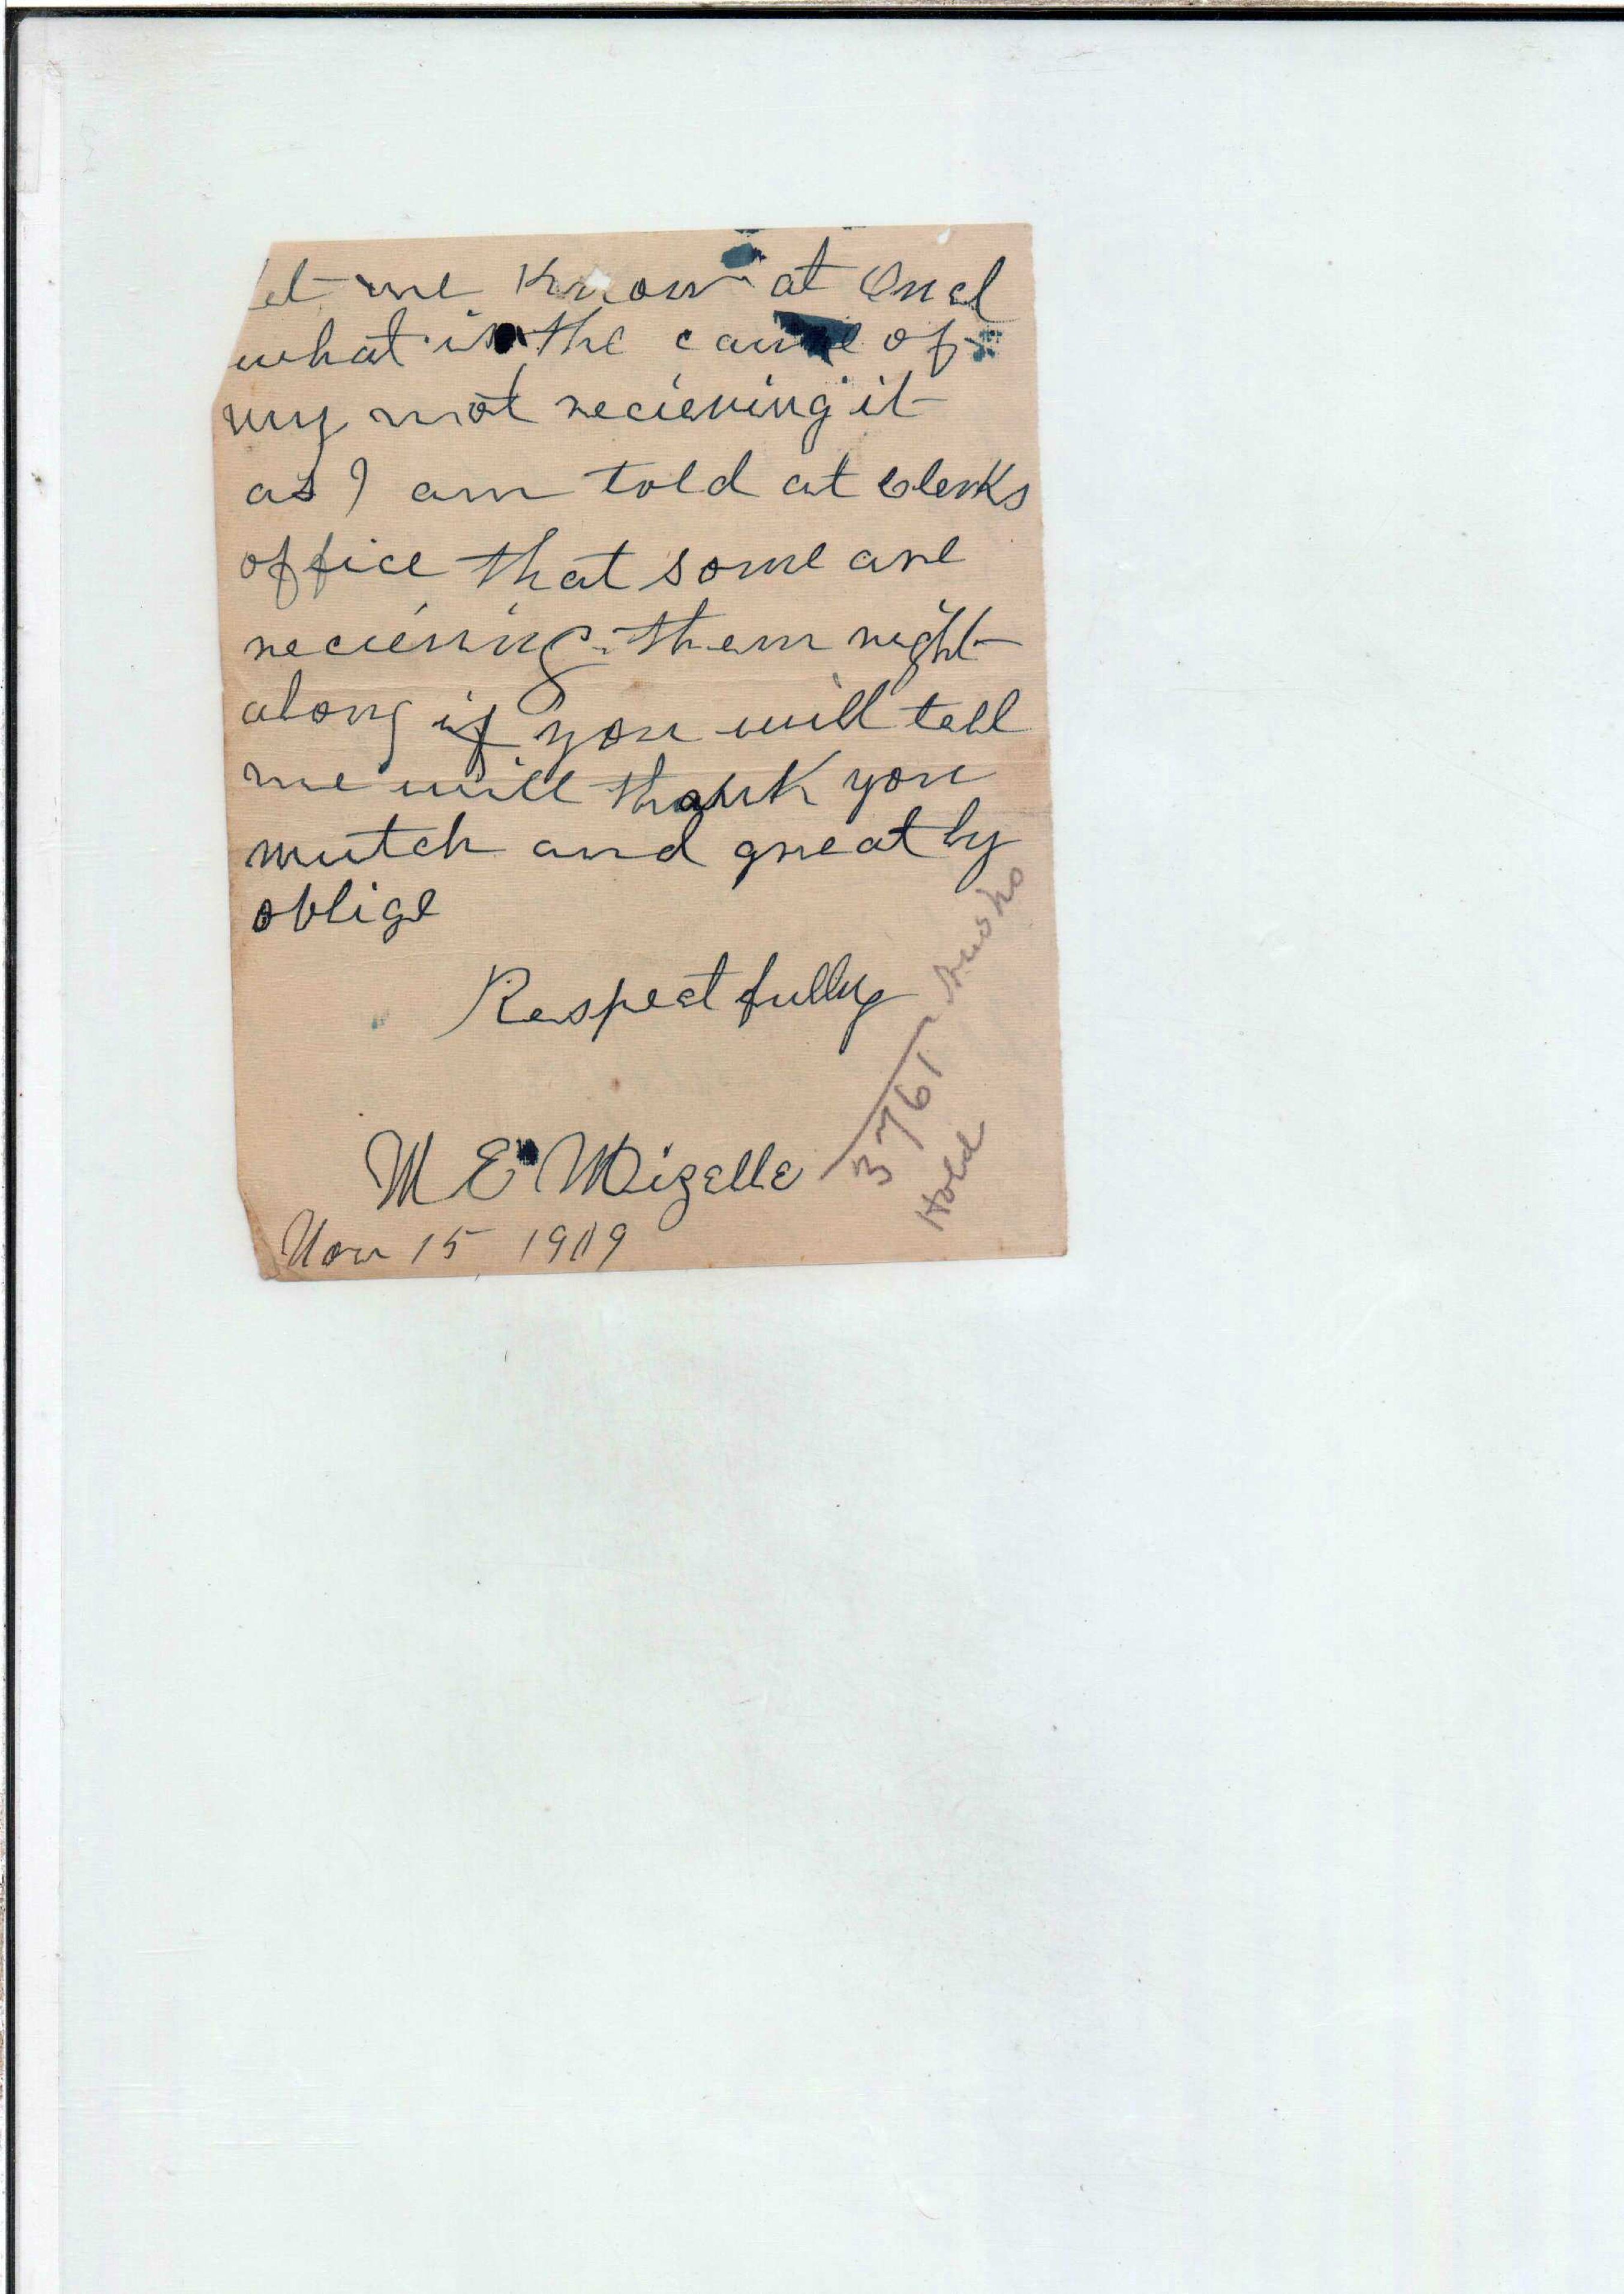 let me Know at Once
what is the cause of
my not recieving it
as I am told at Clerks
office that some are
recieving them right
along if you will tell
me will thank you
mutch and greatly
oblige
Respectfully
M E Mizelle
Nov 15 1909
3761
Hold